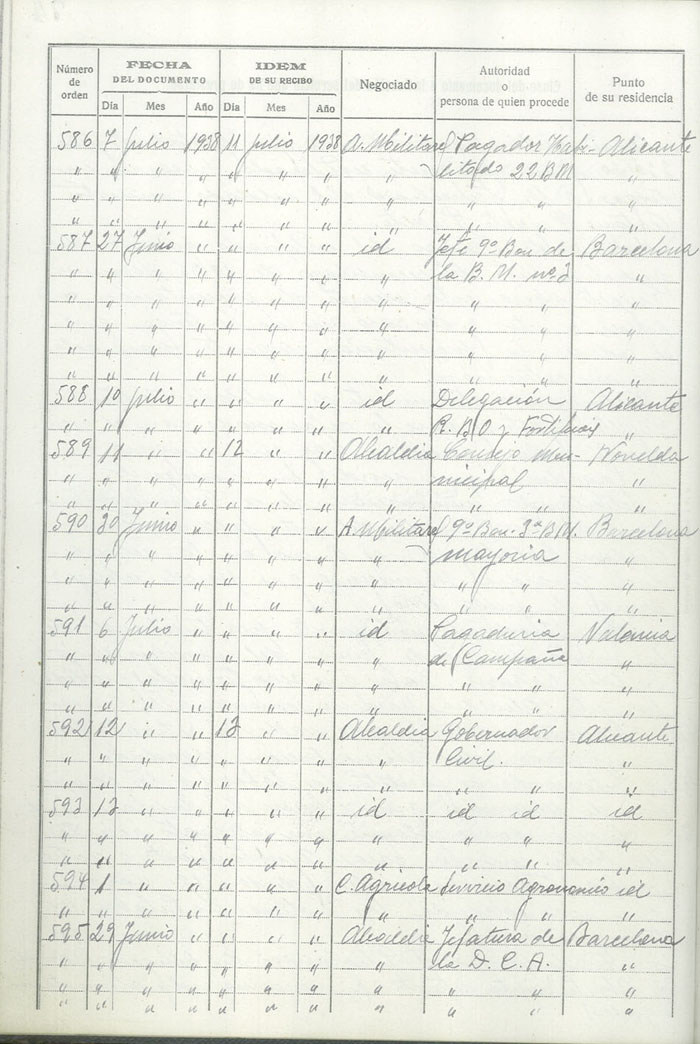 Número de orden | FECHA DEL DOCUMENTO | IDEM DE SU RECIBO | Negociado | Autoridad o persona de quien procede | Punto de su residencia
Día | Mes | Año | Día | Mes | Año
586 7 Julio 1938 11 Julio 1938 A. Militares Pagador Habi- Alicante
" " " " " " " " litado 22 B M "
" " " " " " " " " " "
" " " " " " " " " " "
587 27 Junio " " " " id Jefe 9º Bon de Barcelona
" " " " " " " " la B. M. nº 3 "
" " " " " " " " " " "
" " " " " " " " " " "
" " " " " " " " " " "
" " " " " " " " " " "
588 10 Julio " " " " id Delegación Alicante
" " " " " " " " R. B O y "
589 11 " " 12 " " Alcaldia Consejo Mu- Novelda
" " " " " " " " nicipal "
" " " " " " " " " " "
590 30 Junio " " " " A. Militares 9º Bon. 3ª B M. Barcelona
" " " " " " " " mayoria "
" " " " " " " " " " "
" " " " " " " " " " "
591 6 Julio " " " " id Pagaduria Valencia
" " " " " " " " de Campaña "
" " " " " " " " " " "
" " " " " " " " " " "
592 12 " " 13 " " Alcaldia Gobernador Alicante
" " " " " " " " Civil. "
" " " " " " " " " " "
593 13 " " " " " id id id id
" " " " " " " " " " "
" " " " " " " " " " "
594 1 " " " " " C. Agricola Servicio Agronomico id
" " " " " " " " " " "
595 29 Junio " " " " Alcaldia Jefatura de Barcelona
" " " " " " " " la D. C. A. "
" " " " " " " " " " "
" " " " " " " " " " "